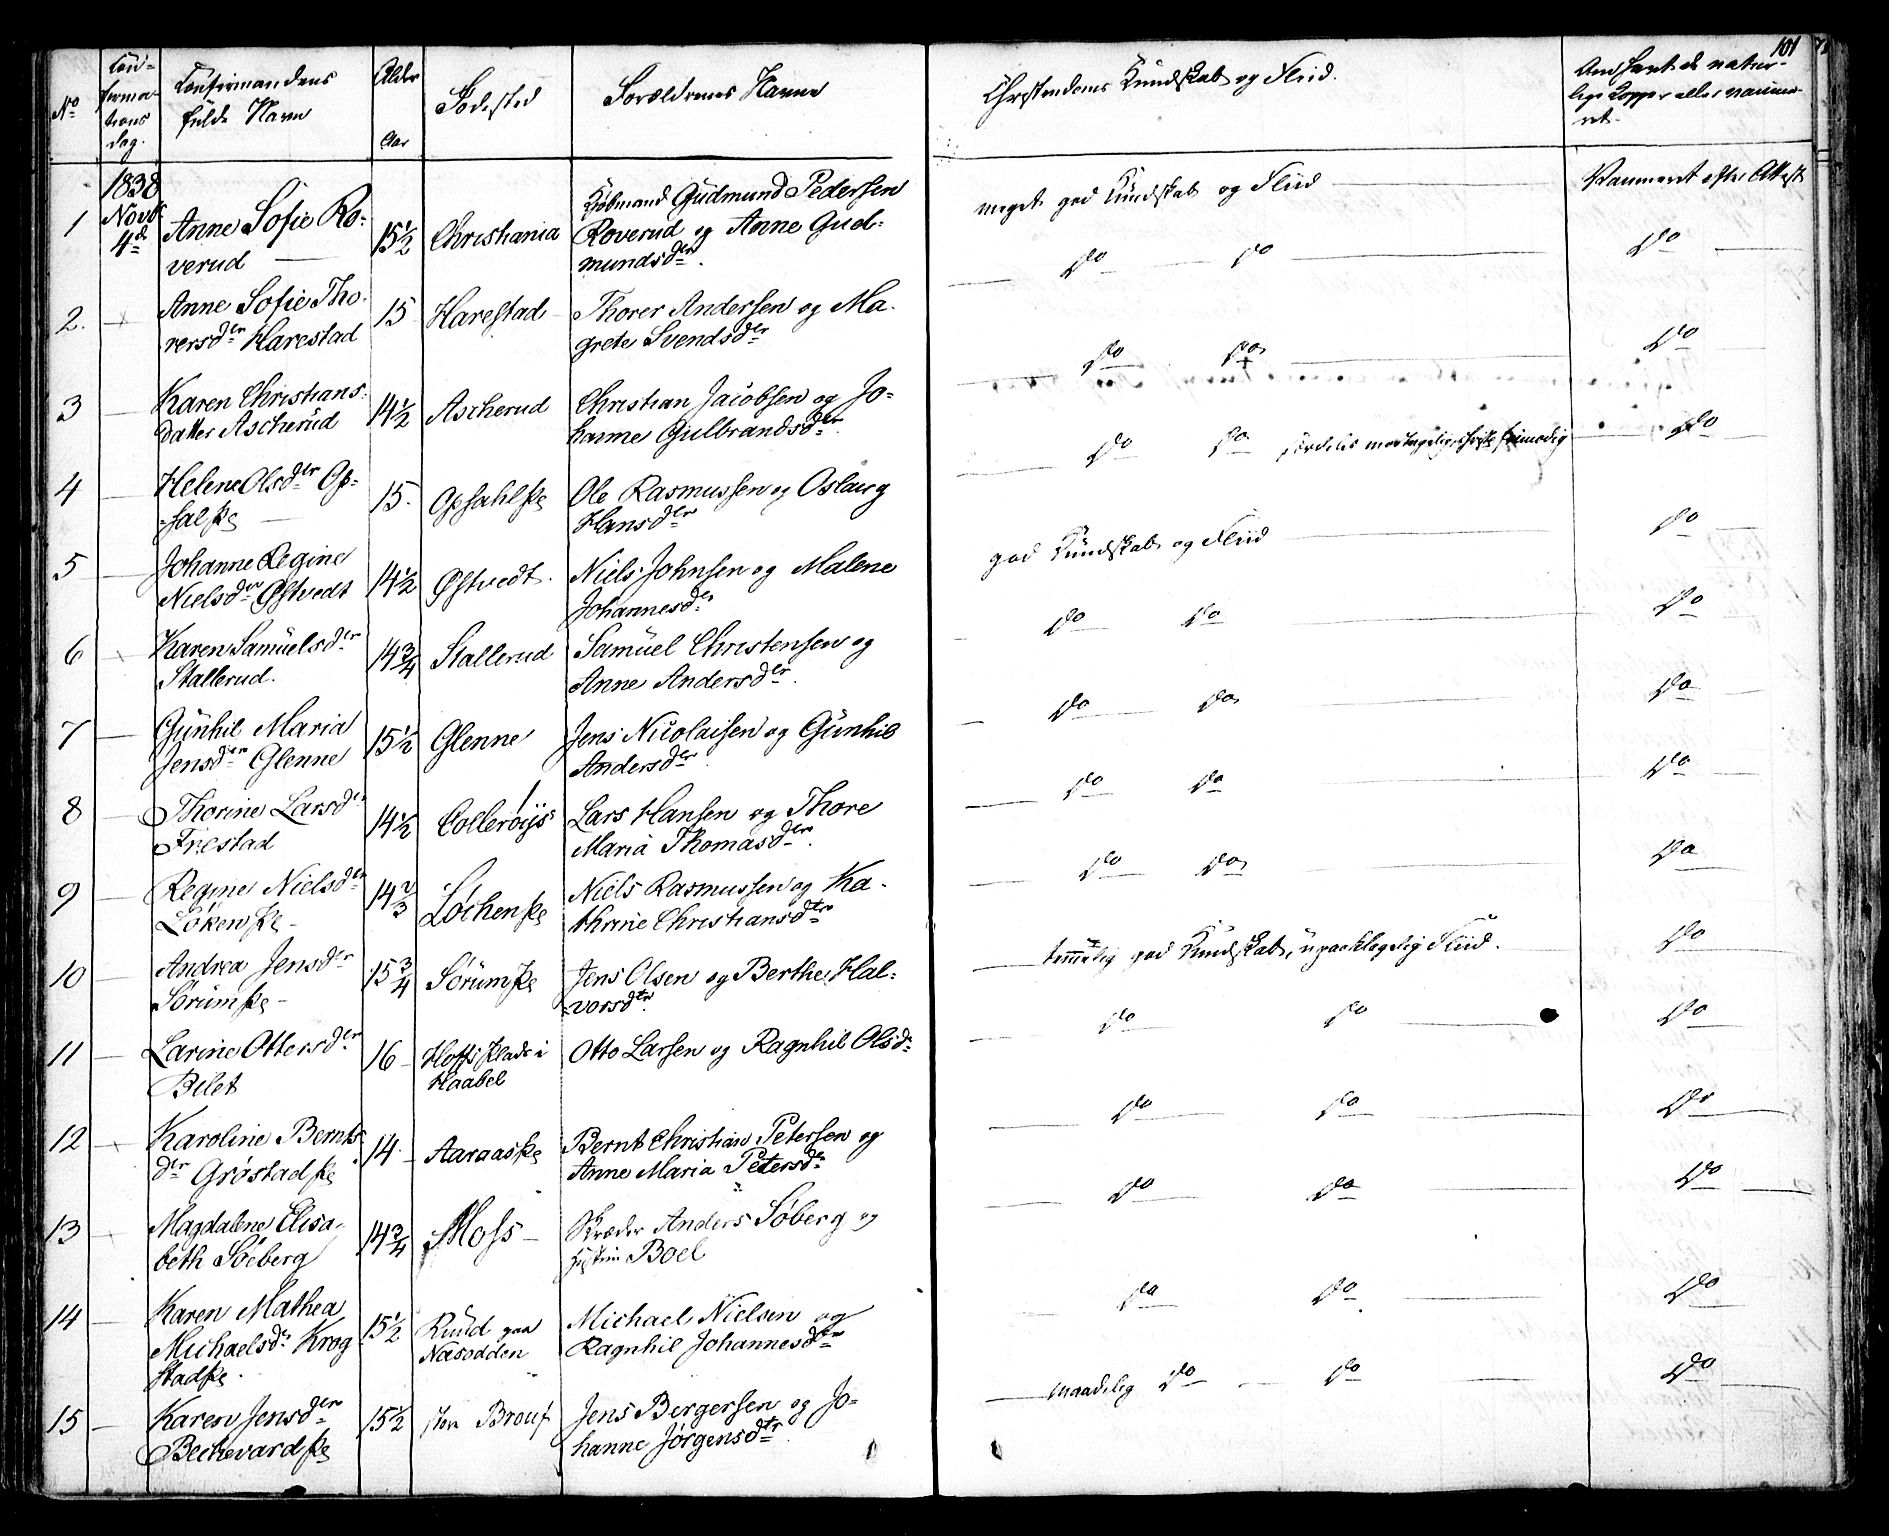 101
No
Con-
firma-
tions
dag.
Confirmandens
fulde Navn
Alder
Aar
Fødested
Forældrenes Navne
Christendoms Kundskab og Fliid.
Om havt de natur-
lige Kopper eller vaccine-
ret.
1838
1 Novbr 4de Anne Sofie Ro-
verud
15½ Christiania
Kjøbmand Gudmund Pedersen
Roverud og Anne Gud-
mundsdtr.
meget god Kundskab og Fliid
Vaccineret efter Attest
2. Anne Sofie Tho-
rersdtr Harestad
15 Harestad
Thorer Andersen og Ma-
grete Svendsdtr
do do do
3 Karen Christians-
datter Ascherud
14½ Ascherud
Christian Jacobsen og Jo-
hanne Gulbrandsdtr.
do do do
4 Helene Olsdtr Op-
sal
15. Opsahl
Ole Rasmussen og Oslaug
Hansdtr
do do do
5 Johanne Regine
Nielsdtr Østvedt
14½ Østvedt.
Niels Johnsen og Malene
Johannesdtr
god Kundskab og Fliid
do
6 Karen Samuelsdtr
Stallerud.
14¾ Stallerud
Samuel Christensen og
Anne Andersdtr.
do do do
7 Gunhil Maria
Jensdtr Glenne
15½ Glenne
Jens Nicolaisen og Gunhil
Andersdtr.
do do do
8 Thorine Larsdtr
Frestad
14½
Lars Hansen og Thore
Maria Thomasdtr.
do do do
9 Regine Nielsdtr
Løken
14⅔ Løchen
Niels Rasmussen og Ka-
thrine Christiansdtr
do do do
10 Andrea Jensdtr
Sørum
15¾ Sørum
Jens Olsen og Berthe Hal-
vorsdtr.
temmelig god Kundskab, upaaklagelig Fliid.
do
11 Larine Ottersdtr
Bilet
16 Hoffs Plads i
Haabel
Otto Larsen og Ragnhil Olsdr
do do do
12 Karoline Bernts-
dtr Grøstad
14 Aaraas
Bernt Christian Petersen og
Anne Maria Petersdr
do do do
13 Magdalene Elisa-
beth Søeberg
14¾ Moss
Skræder Anders Søberg og
Hustru Boel
do do do
14 Karen Mathea
Michaelsdr Krog-
stad
15½ Ruud paa
Næsodden
Michael Nielsen og
Ragnhil Johannesdtr
do do do
15 Karen Jensdtr
Bechevard
15½
Jens Bergersen og Jo-
hanne Jørgensdtr.
maadelig do do do